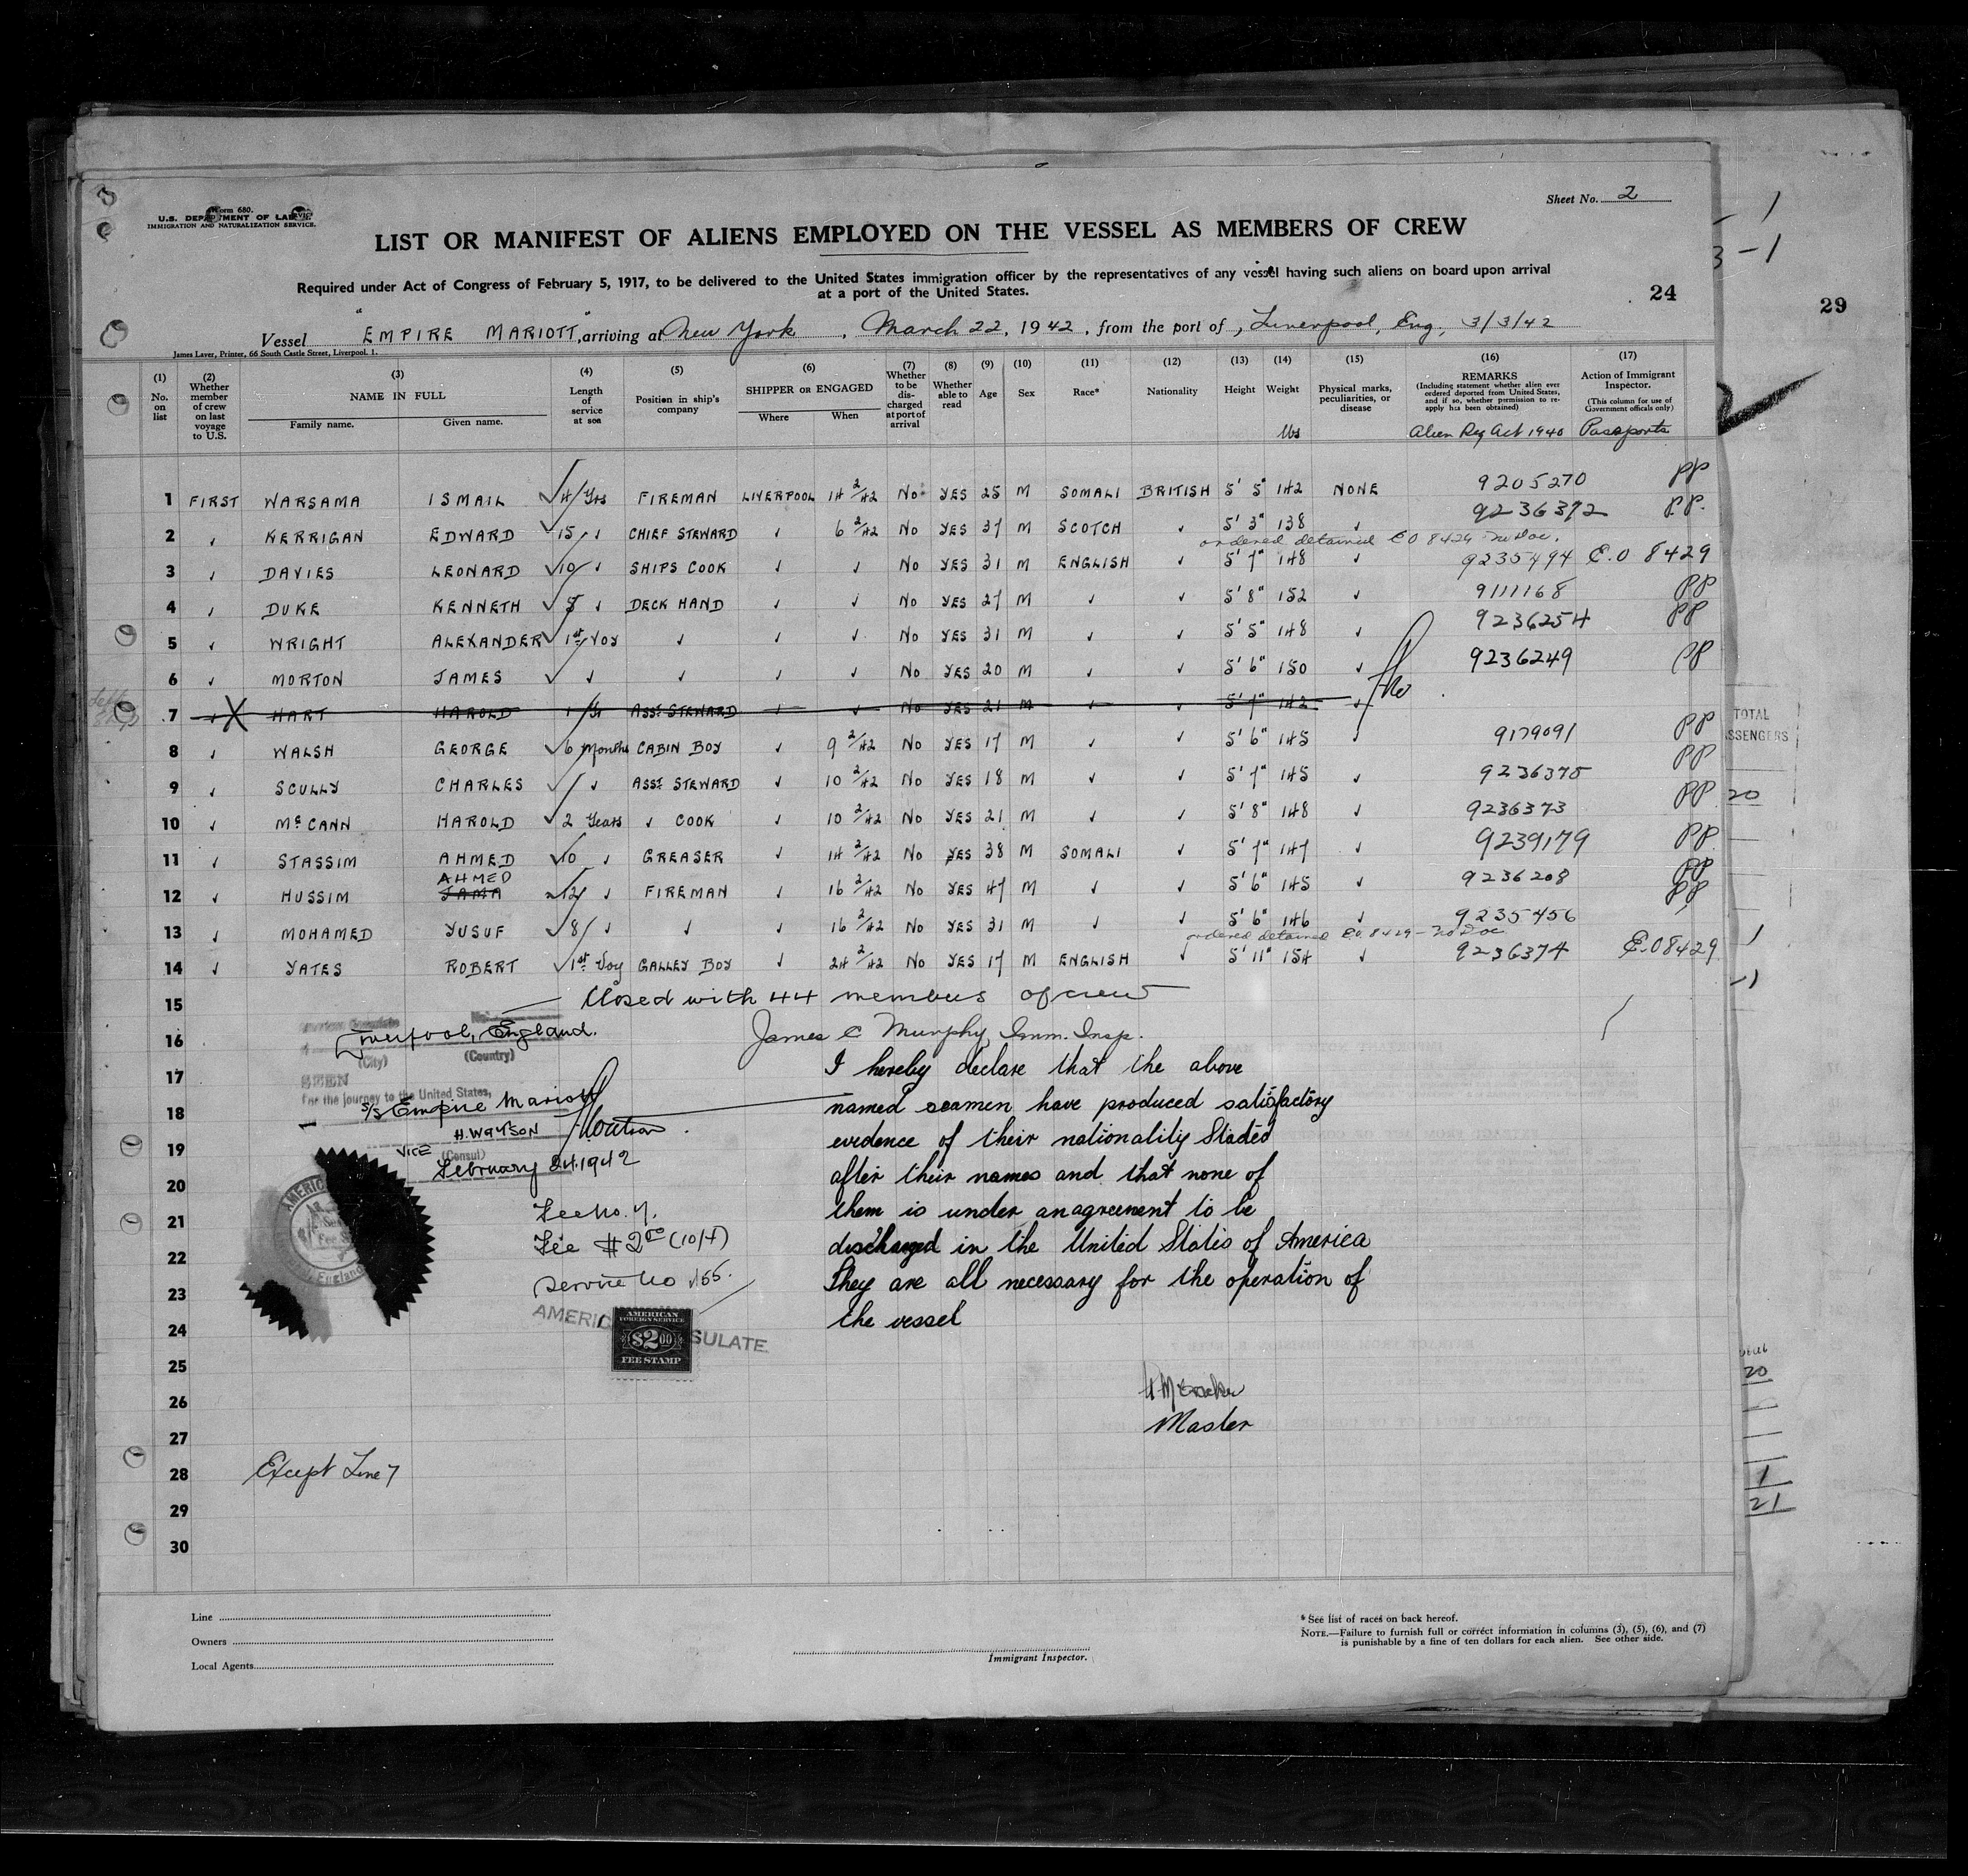 Form 680.
U.S. DEPARTMENT OF LABOR
IMMIGRATION AND NATURALIZATION SERVICE.
Sheet No. 2
LIST OR MANIFEST OF ALIENS EMPLOYED ON THE VESSEL AS MEMBERS OF CREW
Required under Act of Congress of February 5, 1917, to be delivered to the United States immigration officer by the representatives of any vessel having such aliens on board upon arrival
at a port of the United States.
24
29
Vessel "EMPIRE MARIOTT", arriving at New York, March 22, 1942, from the port of, Liverpool, Eng., 3/3/42
James Laver, Printer, 66 South Castle Street, Liverpool. 1.
(1) No. on list (2) Whether member of crew on last voyage to U.S. (3) NAME IN FULL Family name. Given name. (4) Length of service at sea (5) Position in ship's company (6) SHIPPER OR ENGAGED Where When (7) Whether to be discharged at port of arrival (8) Whether able to read (9) Age (10) Sex (11) Race* (12) Nationality (13) Height (14) Weight lbs (15) Physical marks, peculiarities, or disease (16) REMARKS (Including statement whether alien ever ordered deported from United States, and if so, whether permission to reapply has been obtained) Alien Reg Act 1940 (17) Action of Immigrant Inspector. (This column for use of Government officials only) Passports
1 FIRST WARSAMA ISMAIL ✓ 4 Yrs FIREMAN LIVERPOOL 14 2/42 No YES 25 M SOMALI BRITISH 5' 5" 142 NONE 9205270 PP
2 ✓ KERRIGAN EDWARD ✓ 15 ✓ CHIEF STEWARD ✓ 6 2/42 No YES 37 M SCOTCH ✓ 5' 3" 138 ✓ 9236372 P.P.
ordered detained EO 8429 no Doc.
3 ✓ DAVIES LEONARD ✓ 10 ✓ SHIPS COOK ✓ ✓ No YES 31 M ENGLISH ✓ 5' 7" 148 ✓ 9235494 E.O 8429
4 ✓ DUKE KENNETH ✓ ✓ DECK HAND ✓ ✓ No YES 27 M ✓ ✓ 5' 8" 152 ✓ 9111168 PP
5 ✓ WRIGHT ALEXANDER ✓ 1st Voy ✓ ✓ ✓ No YES 31 M ✓ ✓ 5' 5" 148 ✓ 9236254 PP
6 ✓ MORTON JAMES ✓ ✓ ✓ ✓ ✓ No YES 20 M ✓ ✓ 5' 6" 150 ✓ 9236249 PP
7 ✓ X HART HAROLD 1 Yr ASST STEWARD ✓ ✓ No YES 21 M ✓ ✓ 5' 7" 142 ✓
8 ✓ WALSH GEORGE ✓ 6 Months CABIN BOY ✓ 9 2/42 No YES 17 M ✓ ✓ 5' 6" 145 ✓ 9179091 PP
9 ✓ SCULLY CHARLES ✓ ✓ ASST STEWARD ✓ 10 2/42 No YES 18 M ✓ ✓ 5' 7" 145 ✓ 9236375 PP
10 ✓ McCANN HAROLD ✓ 2 Years ✓ COOK ✓ 10 2/42 No YES 21 M ✓ ✓ 5' 8" 148 ✓ 9236373 PP
11 ✓ STASSIM AHMED ✓ 10 ✓ GREASER ✓ 14 2/42 No YES 38 M SOMALI ✓ 5' 7" 147 ✓ 9239179 PP
12 ✓ HUSSIM JAMA AHMED 12 ✓ FIREMAN ✓ 16 2/42 No YES 47 M ✓ ✓ 5' 6" 145 ✓ 9236208 PP
13 ✓ MOHAMED YUSUF ✓ 8 ✓ ✓ ✓ 16 2/42 No YES 31 M ✓ ✓ 5' 6" 146 ✓ 9235456 PP
ordered detained E.O. 8429 - no Doc
14 ✓ YATES ROBERT ✓ 1st Voy GALLEY BOY ✓ 24 2/42 No YES 17 M ENGLISH ✓ 5' 11" 154 ✓ 9236374 E.O 8429
15 Closed with 44 members of crew
16 James C Murphy, Imm. Insp.
Liverpool, England.
(City) (Country)
SEEN
For the journey to the United States,
S/S Empire Mariott
H. WATSON
VICE (Consul)
February 24. 1942
17 I hereby declare that the above
18 named seamen have produced satisfactory
19 evidence of their nationality Stated
20 after their names and that none of
21 them is under an agreement to be
22 discharged in the United States of America
23 They are all necessary for the operation of
24 the vessel
Fee No. 7.
Fee $2.00 (10/4)
Service No 155.
AMERICAN FOREIGN SERVICE
$2.00
FEE STAMP
25
26
27 Master
28 Except Line 7
29
30
TOTAL
PASSENGERS
20
20
1
21
Line
Owners
Local Agents
Immigrant Inspector.
* See list of races on back hereof.
NOTE.—Failure to furnish full or correct information in columns (3), (5), (6), and (7)
is punishable by a fine of ten dollars for each alien. See other side.